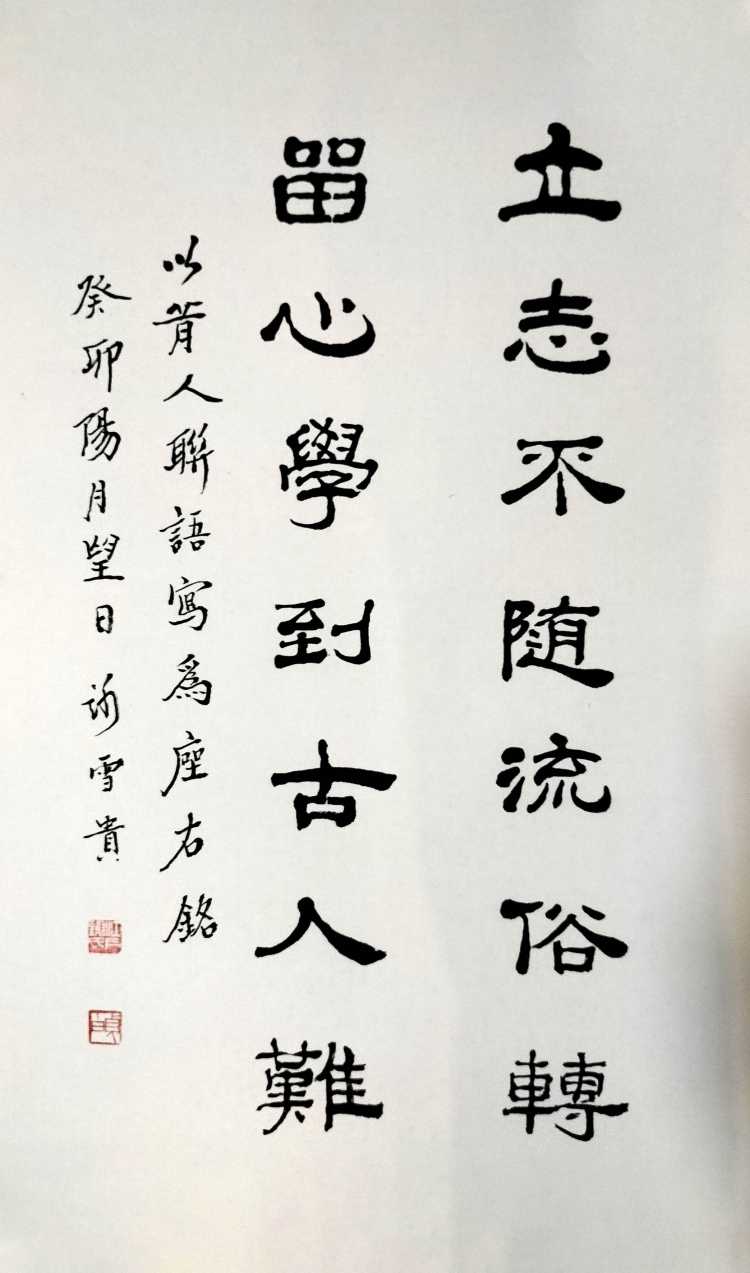 立志不随流俗轉
留心學到古人難
以昔人聯語寫為座右銘
癸卯陽月望日 雪貴